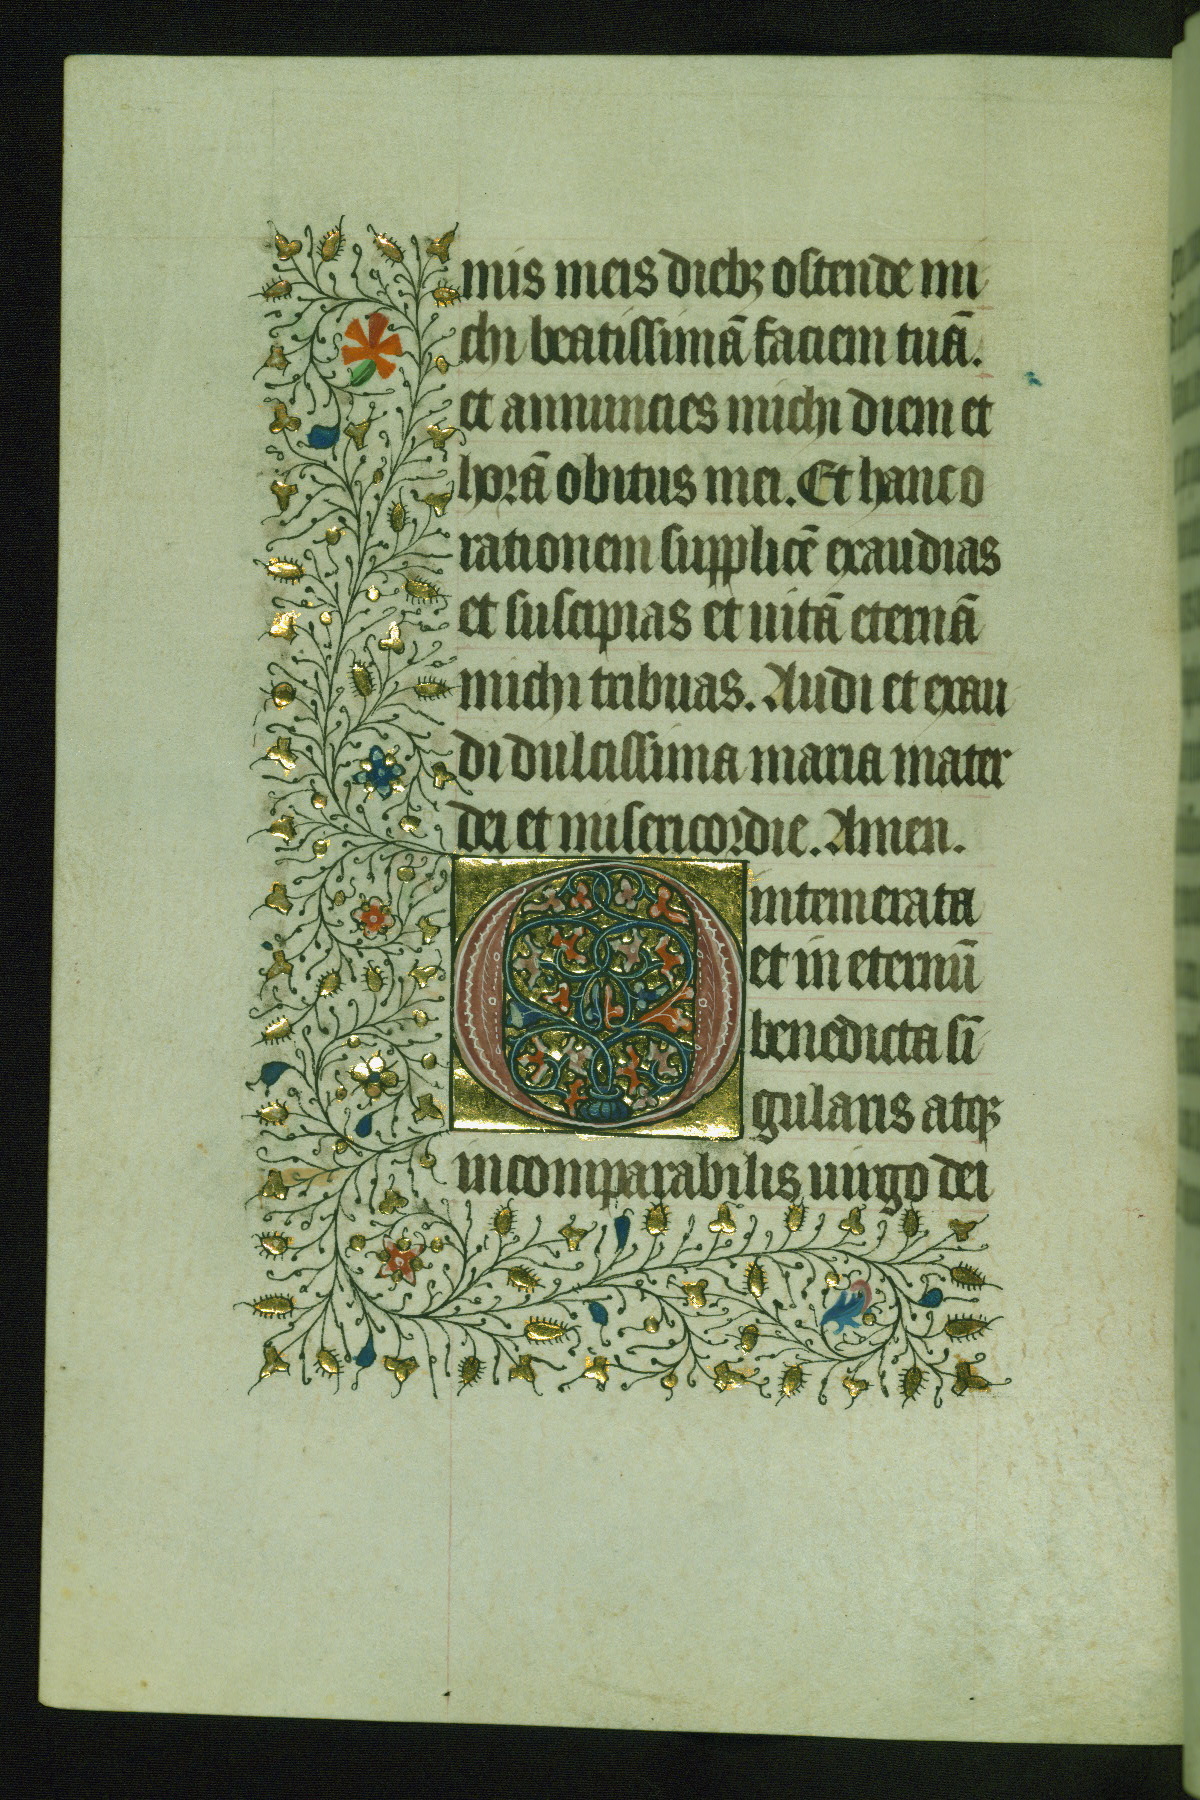 mis meis dieb⁊ ostende mi
chi beatissimā faciem tuā.
et annuncies michi diem et
horā obitus mei. Et hanc o
rationem supplicē exaudias
et suscipias et uitā eternā
michi tribuas. Audi et exau
di dulcissima maria mater
dei et misericordie. Amen.
O intemerata
et in eternū
benedicta sī
gularis atqꝫ
incomparabilis uirgo dei